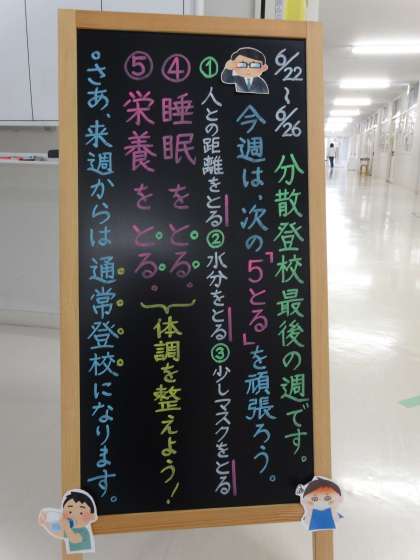 6/22～6/26
分散登校最後の週です。
今週は、次の「5とる」を頑張ろう。
①人との距離をとる②水分をとる③少しマスクをとる
④睡眠をとる。
⑤栄養をとる。
体調を整えよう！
さあ、来週からは通常登校になります。